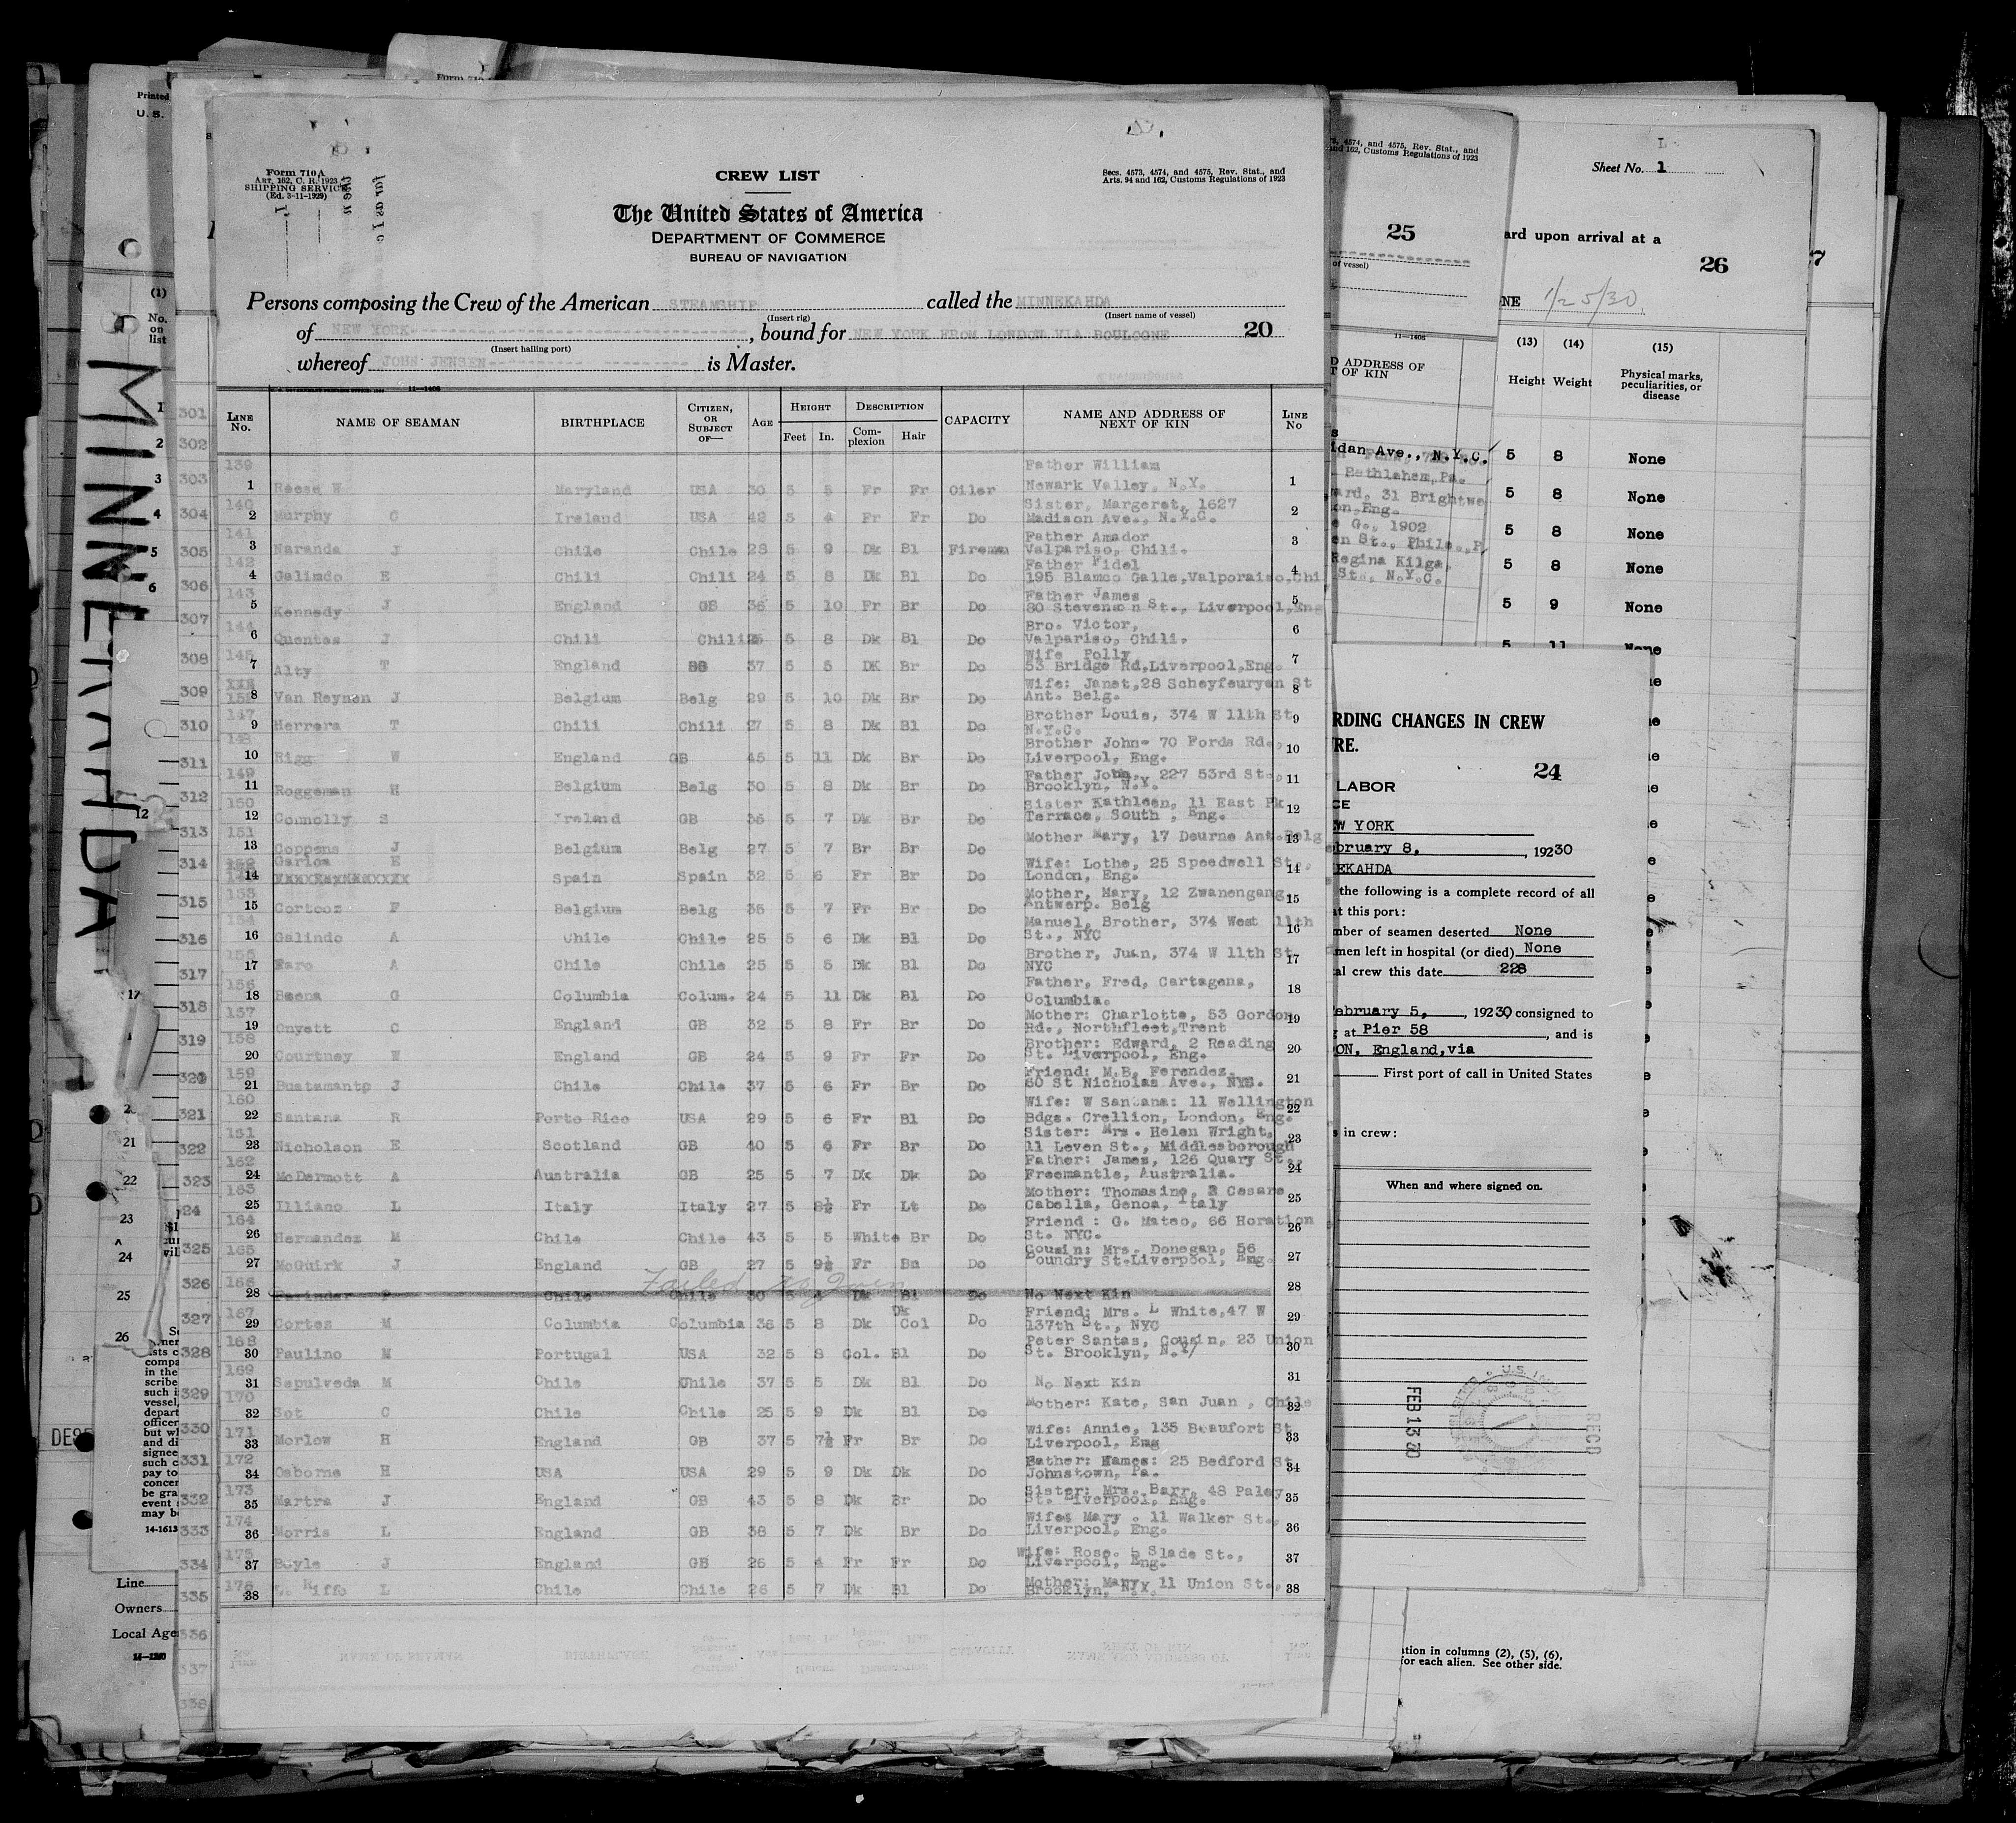 Form 710A
ART. 162, C. R. 1923
SHIPPING SERVICE
(Ed. 3-11-1929)
CREW LIST
Secs. 4573, 4574, and 4575, Rev. Stat., and
Arts. 94 and 162, Customs Regulations of 1923
The United States of America
DEPARTMENT OF COMMERCE
BUREAU OF NAVIGATION
Persons composing the Crew of the American STEAMSHIP called the MINNEKAHDA
(Insert rig) (Insert name of vessel)
of NEW YORK, bound for NEW YORK FROM LONDON VIA BOULOGNE 20
(Insert hailing port)
whereof JOHN JENSEN is Master.
11—1406
LINE No. NAME OF SEAMAN BIRTHPLACE CITIZEN, OR SUBJECT OF— AGE HEIGHT Feet In. DESCRIPTION Complexion Hair CAPACITY NAME AND ADDRESS OF NEXT OF KIN LINE No
139 Father William
1 Reese W Maryland USA 30 5 5 Fr Fr Oiler Newark Valley, N.Y. 1
140 Sister, Margeret, 1627
2 Murphy C Ireland USA 42 5 4 Fr Fr Do Madison Ave., N.Y.C. 2
141 Father Amador
3 Naranda J Chile Chile 28 5 9 Dk Bl Fireman Valpariso, Chili. 3
142 Father Fidel
4 Galindo E Chili Chili 24 5 8 Dk Bl Do 195 Blamco Calle,Valporaiso,Chi 4
143 Father James
5 Kennedy J England GB 36 5 10 Fr Br Do 80 Stevenson St., Liverpool,Eng 5
144 Bro. Victor,
6 Quentas J Chili Chili 26 5 8 Dk Bl Do Valpariso, Chili. 6
145 Wife Polly
7 Alty T England GB 37 5 5 DK Br Do 53 Bridge Rd,Liverpool,Eng. 7
Wife: Janet,28 Scheyfeuryen St
8 Van Reynen J Belgium Belg 29 5 10 Dk Br Do Ant. Belg. 8
147 Brother Louis, 374 W 11th St
9 Herrera T Chili Chili 27 5 8 Dk Bl Do N.Y.C. 9
148 Brother John- 70 Fords Rd.,
10 Rigg W England GB 45 5 11 Dk Br Do Liverpool, Eng. 10
149 Father John, 227 53rd St.,
11 Roggeman H Belgium Belg 30 5 8 Dk Br Do Brooklyn, N.Y. 11
150 Sister Kathleen, 11 East Pk
12 Connolly S Ireland GB 36 5 7 Dk Br Do Terrace, South , Eng. 12
151 Mother Mary, 17 Deurne Ant.Belg
13 Coppens J Belgium Belg 27 5 7 Br Br Do 13
152 Garica E Wife: Lothe, 25 Speedwell St.,
14 XXXXXXXXXXXXX Spain Spain 32 5 6 Fr Br Do London, Eng. 14
153 Mother, Mary, 12 Zwanengang
15 Corteoz F Belgium Belg 36 5 7 Fr Br Do Antwerp. Belg 15
154 Manuel, Brother, 374 West 11th
16 Galindo A Chile Chile 25 5 6 Dk Bl Do St., NYC 16
155 Brother, Juan, 374 W 11th St
17 Faro A Chile Chile 25 5 5 Dk Bl Do NYC 17
156 Father, Fred, Cartagena,
18 Baena G Columbia Colum. 24 5 11 Dk Bl Do Columbia. 18
157 Mother: Charlotte, 53 Gordon
19 Cnyett C England GB 32 5 8 Fr Br Do Rd., Northfleet,Trent 19
158 Brother: Edward, 2 Reading
20 Courtney W England GB 24 5 9 Fr Fr Do St. Liverpool, Eng. 20
159 Friend: M.B. Ferendez.
21 Bustamantp J Chile Chile 37 5 6 Fr Br Do 60 St Nicholas Ave., NYC. 21
160 Wife: W Santana: 11 Wellington
22 Santana R Porto Rico USA 29 5 6 Fr Bl Do Bdgs. Crellion, London, Eng. 22
161 Sister: Mrs. Helen Wright,
23 Nicholson E Scotland GB 40 5 6 Fr Br Do 11 Leven St., Middlesborough 23
162 Father: James, 126 Quary St.,
24 McDermott A Australia GB 25 5 7 Dk Dk Do Freemantle, Australia. 24
163 Mother: Thomasino, 2 Cesare
25 Illiano L Italy Italy 27 5 8½ Fr Lt Do Cabella, Genoa, Italy 25
164 Friend : G. Mateo, 66 Horation
26 Hernandez M Chile Chile 43 5 5 White Br Do St. NYC. 26
165 Cousin: Mrs. Donegan, 56
27 McGuirk J England GB 27 5 9½ Fr Bn Do Foundry St.Liverpool, Eng. 27
166 Failed to Join
28 Chile Chile 30 5 Dk Bl Do No Next Kin 28
167 Dk Friend: Mrs. L White,47 W
29 Cortes M Columbia Columbia 36 5 8 Dk Col Do 137th St., NYC 29
168 Peter Santas, Cousin, 23 Union
30 Paulino M Portugal USA 32 5 8 Col. Bl Do St. Brooklyn, N.Y/ 30
169
31 Sepulveda M Chile Chile 37 5 5 Dk Bl Do No Next Kin 31
170 Mother: Kate, San Juan , Chile
32 Sot O Chile Chile 25 5 9 Dk Bl Do 32
171 Wife: Annie, 135 Beaufort St
33 Morlow H England GB 37 5 7½ Fr Br Do Liverpool, Eng 33
172 Father: Hames: 25 Bedford St
34 Osborne H USA USA 29 5 9 Dk Dk Do Johnstown, Pa. 34
173 Sister: Mrs. Barr, 48 Paley
35 Martra J England GB 43 5 8 Dk Br Do St. Liverpool, Eng. 35
174 Wife: Mary . 11 Walker St.,
36 Morris L England GB 38 5 7 Dk Br Do Liverpool, Eng. 36
175 Wife: Rose. 5 Slade St.,
37 Boyle J England GB 26 5 4 Fr Fr Do Liverpool, Eng. 37
176 Mother: Mary, 11 Union St.,
38 Riffo L Chile Chile 26 5 7 Dk Bl Do Brooklyn, N.Y. 38
MINNEKAHDA
Printed
U. S.
(1)
No.
on
list
Line
Owners
Local Age
301
302
303
304
305
306
307
308
309
310
311
312
313
314
315
316
317
318
319
320
321
322
323
24
325
326
327
328
329
330
331
332
333
334
335
336
337
338
4574, and 4575, Rev. Stat., and
and 162, Customs Regulations of 1923
25
of vessel)
11—1406
D ADDRESS OF
T OF KIN
idan Ave., N.Y.C.
Bethlehem,Pa.
ard, 31 Brightwe
on,Eng.
e G., 1902
en St., Phila.,P
Regina Kilga,
St., N.Y.C.
Sheet No. 1
ard upon arrival at a
26
NE 1/25/30
(13) (14) (15)
Height Weight Physical marks, peculiarities, or disease
5 8 None
5 8 None
5 8 None
5 8 None
5 9 None
5 11 None
RDING CHANGES IN CREW
RE.
24
LABOR
CE
EW YORK
bruary 8, , 1930
EKAHDA
the following is a complete record of all
at this port:
mber of seamen deserted None
men left in hospital (or died) None
al crew this date 228
ebruary 5, , 1930, consigned to
g at Pier 58 , and is
ON, England,via
First port of call in United States
s in crew:
When and where signed on.
FEB 13 30
RECD
ation in columns (2), (5), (6),
for each alien. See other side.